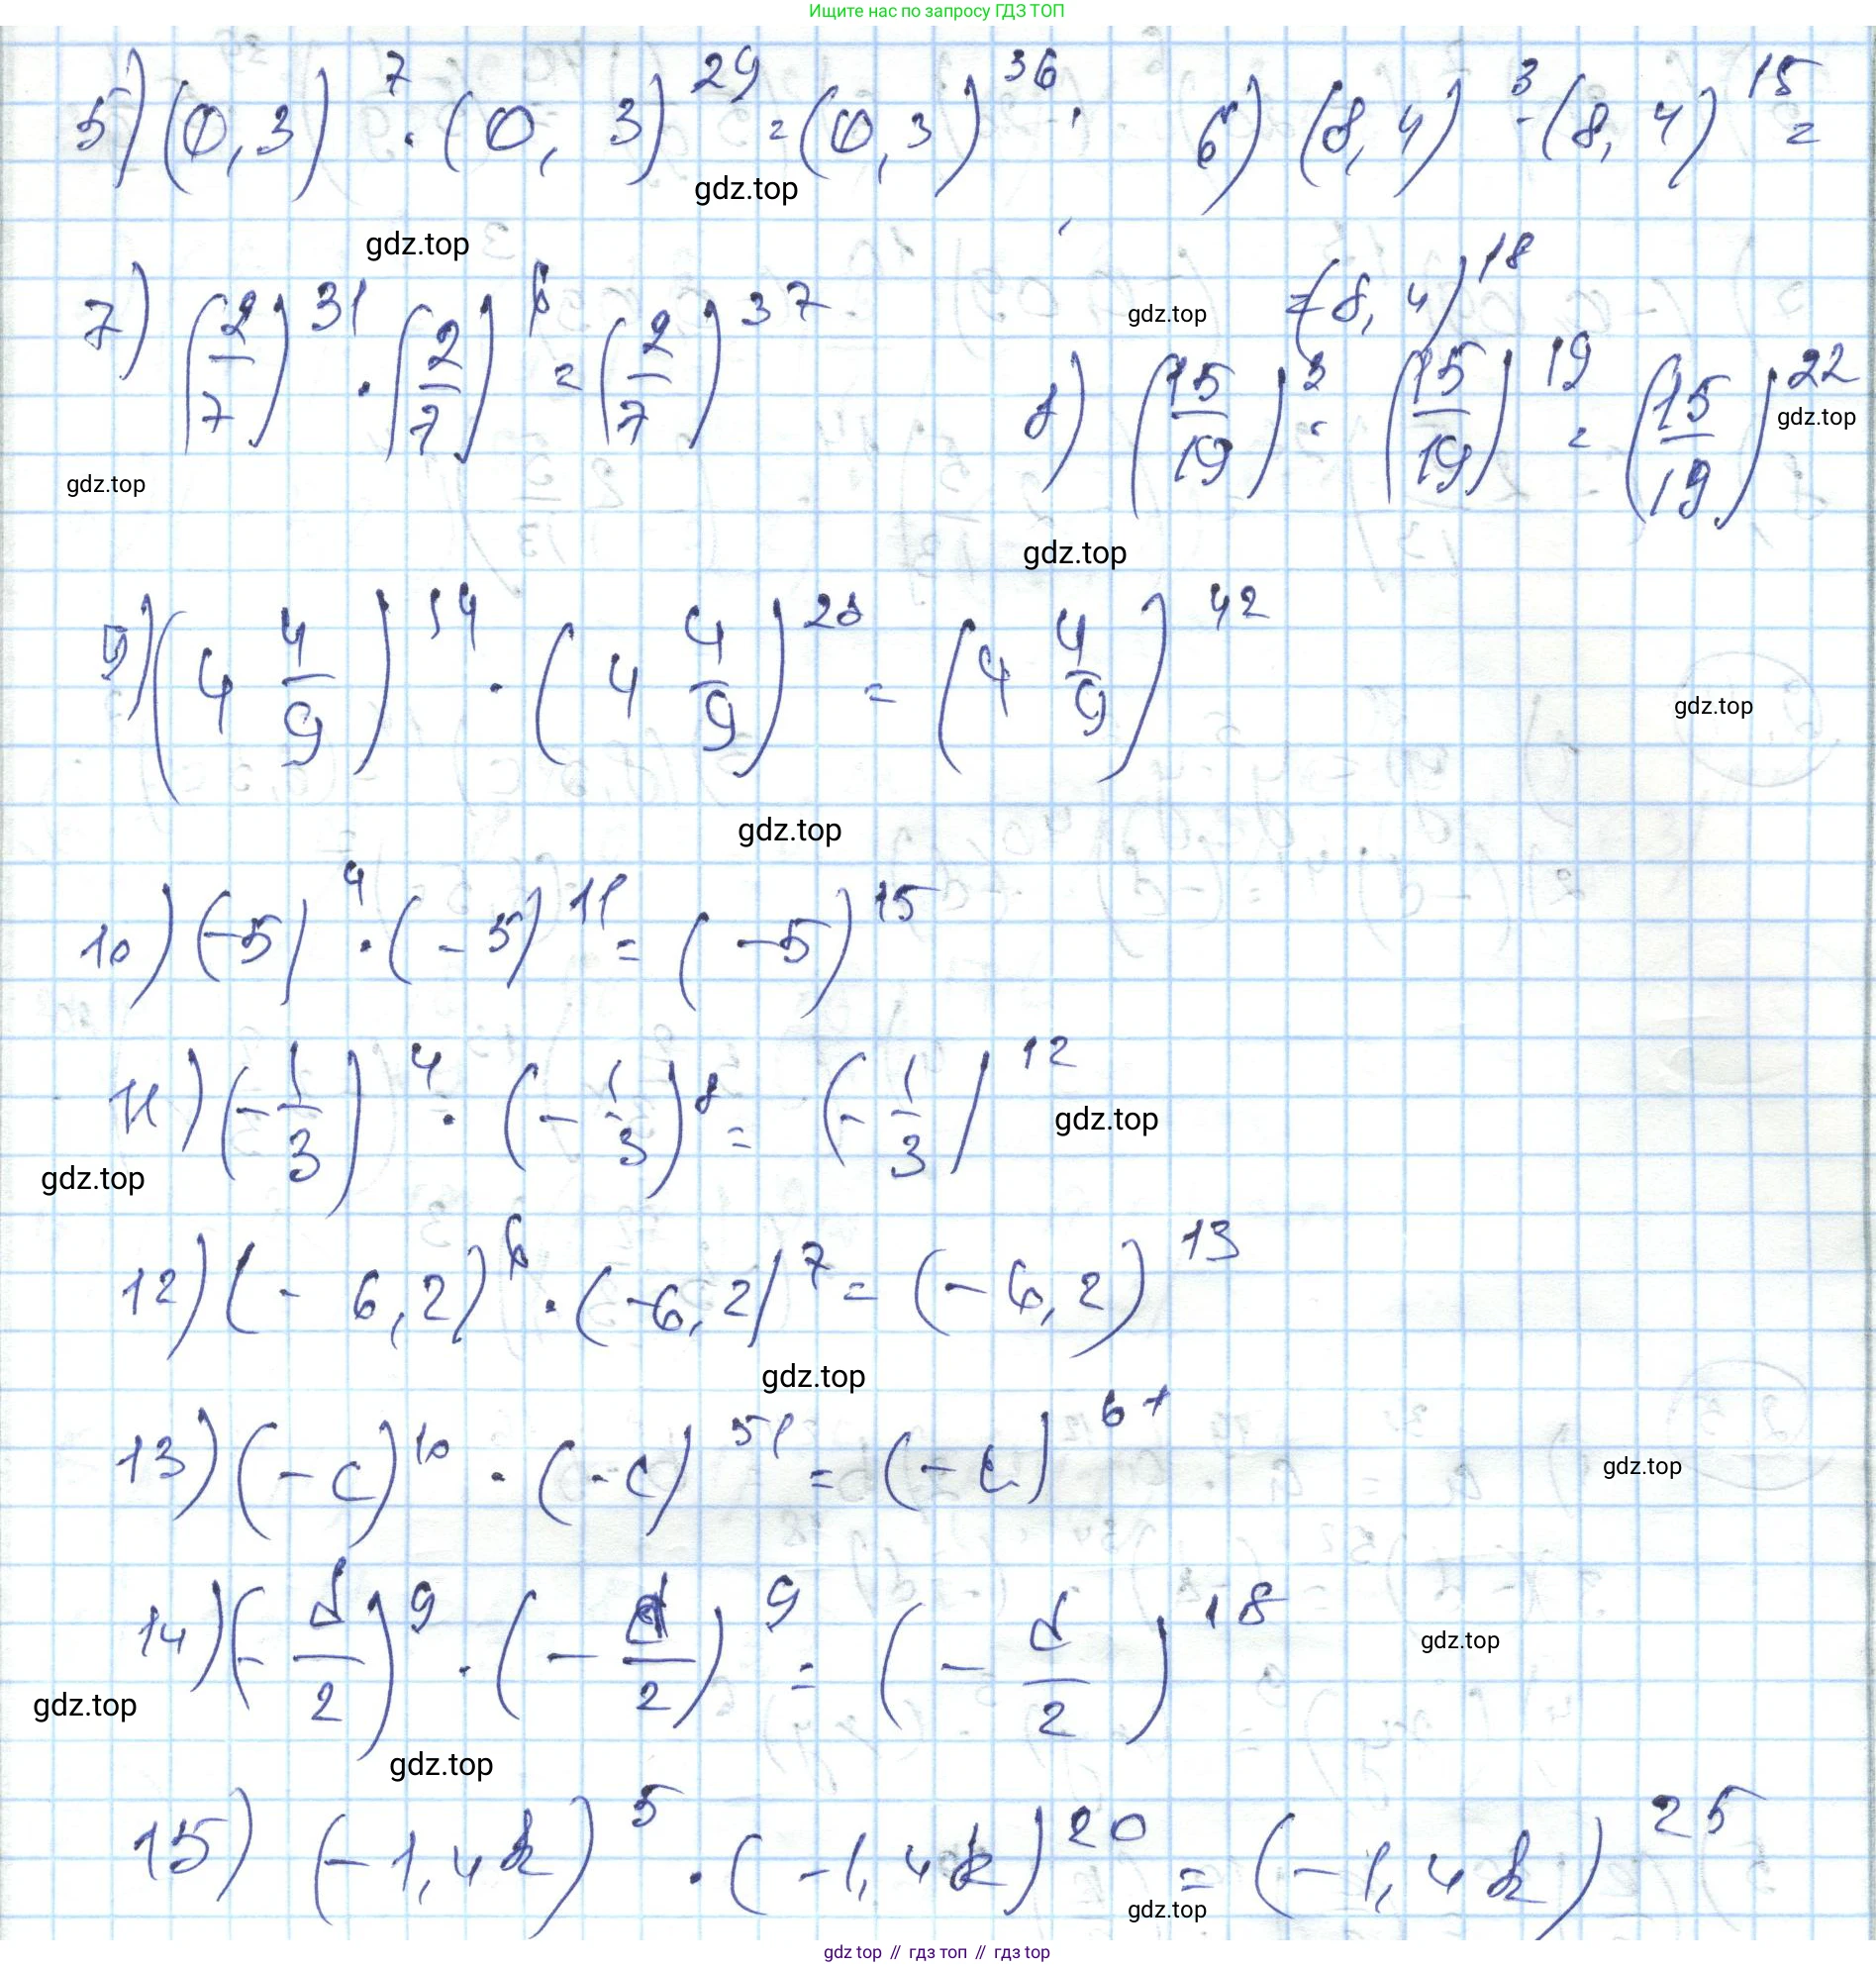 Ищите нас по запросу ГДЗ ТОП
5) (0,3)^7 · (0,3)^29 = (0,3)^36 ; 6) (8,4)^3 · (8,4)^15 =
gdz.top
gdz.top
= (8,4)^18
gdz.top
7) (2/7)^31 · (2/7)^6 = (2/7)^37
8) (15/19)^3 · (15/19)^19 = (15/19)^22
gdz.top
gdz.top
gdz.top
9) (4 4/9)^14 · (4 4/9)^28 = (4 4/9)^42
gdz.top
gdz.top
10) (-5)^4 · (-5)^11 = (-5)^15
11) (-1/3)^4 · (-1/3)^8 = (-1/3)^12
gdz.top
gdz.top
12) (-6,2)^6 · (-6,2)^7 = (-6,2)^13
gdz.top
13) (-c)^10 · (-c)^51 = (-c)^61
gdz.top
14) (-d/2)^9 · (-d/2)^9 = (-d/2)^18
gdz.top
gdz.top
gdz.top
15) (-1,4k)^5 · (-1,4k)^20 = (-1,4k)^25
gdz.top
gdz top // гдз топ // gdz top